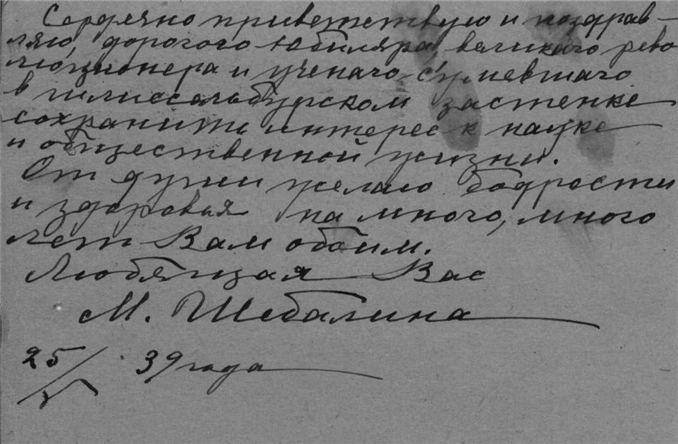 Сердечно приветствую и поздрав-
ляю, дорогого юбиляра, великаго рево
люционера и ученаго, сумевшаго
в шлиссельбургском застенке
сохранить интерес к науке
и общественной жизни.
От души желаю бодрости
и здоровья на много, много
лет Вам обоим.
Любящая Вас
М. Шебалина
25/V 39 года